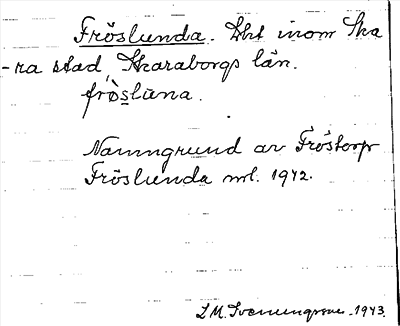 Fröslunda. Lht inom Ska
-ra stad, Skaraborgs län.
frö̀slùna.
Namngrund av Fröstorp
Fröslunda nr1. 1942.
1943.